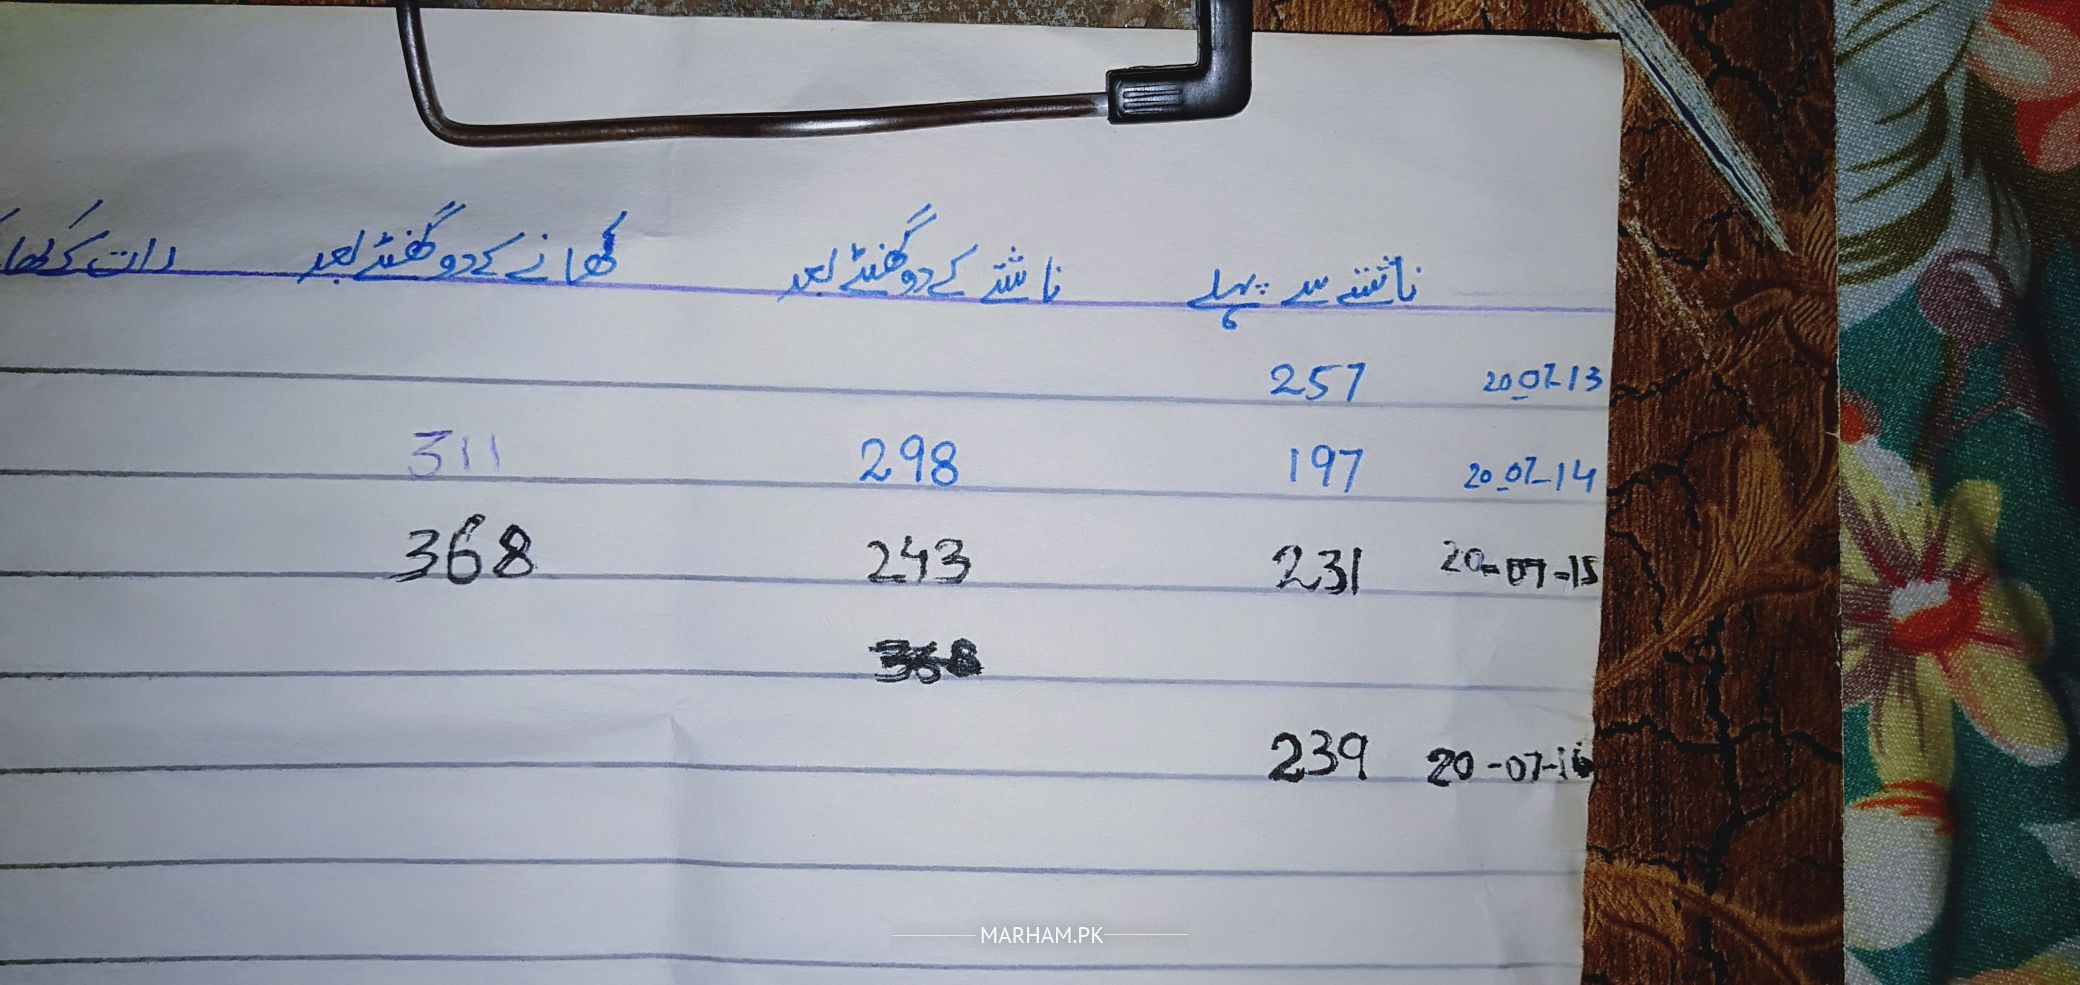 ناشتے سے پہلے ناشتے کے دو گھنٹے بعد کھانے کے دو گھنٹے بعد رات کے کھا
20-07-13 257
20-07-14 197 298 311
20-07-15 231 243 368
20-07-16 239
MARHAM.PK